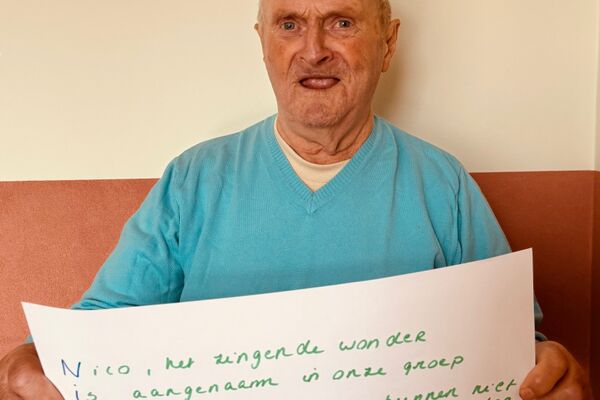 Nico, het zingende wonder
is aangenaam in onze groep
kunnen niet